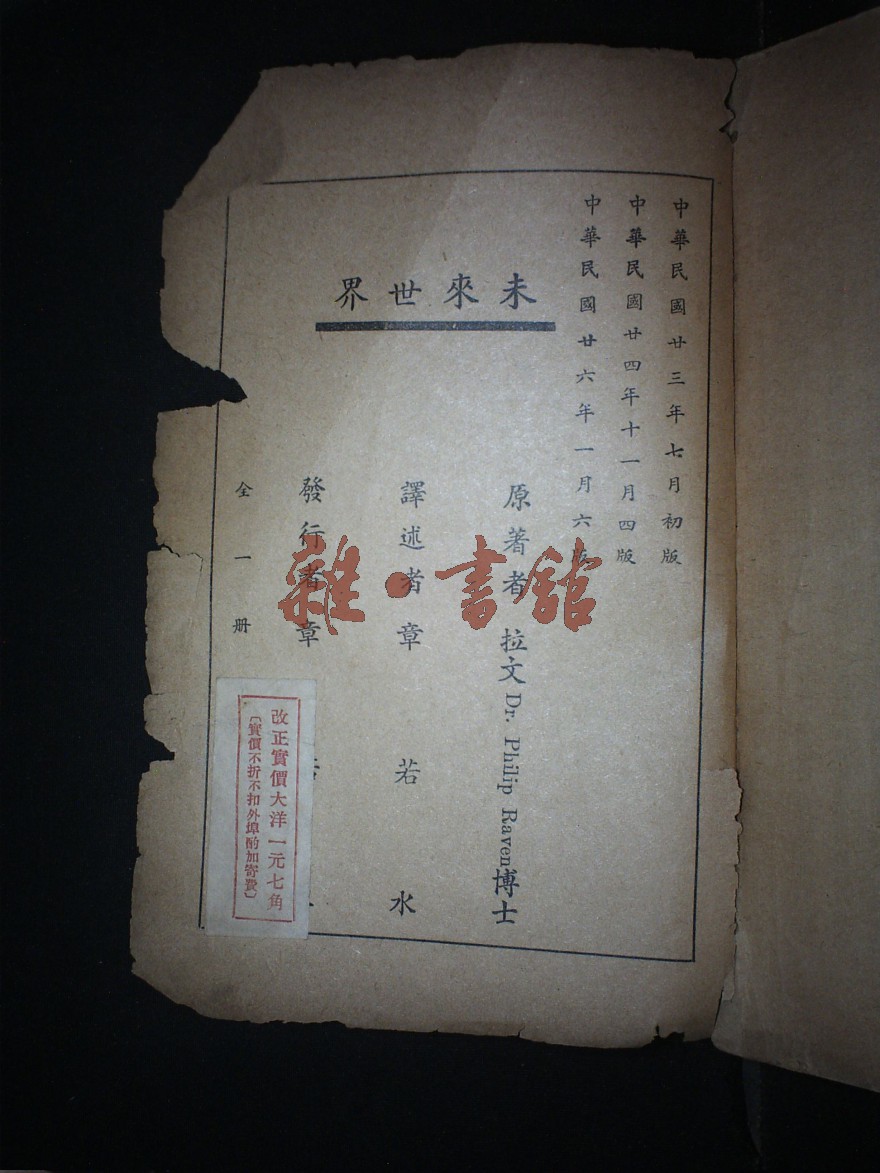 中華民國廿三年七月初版
中華民國廿四年十一月四版
中華民國廿六年一月六版
未來世界
原著者 拉文Dr. Philip Raven博士
譯述者 章若水
發行者 章
全一冊
改正實價大洋一元七角
〔實價不折不扣外埠酌加寄費〕
雜·書舘